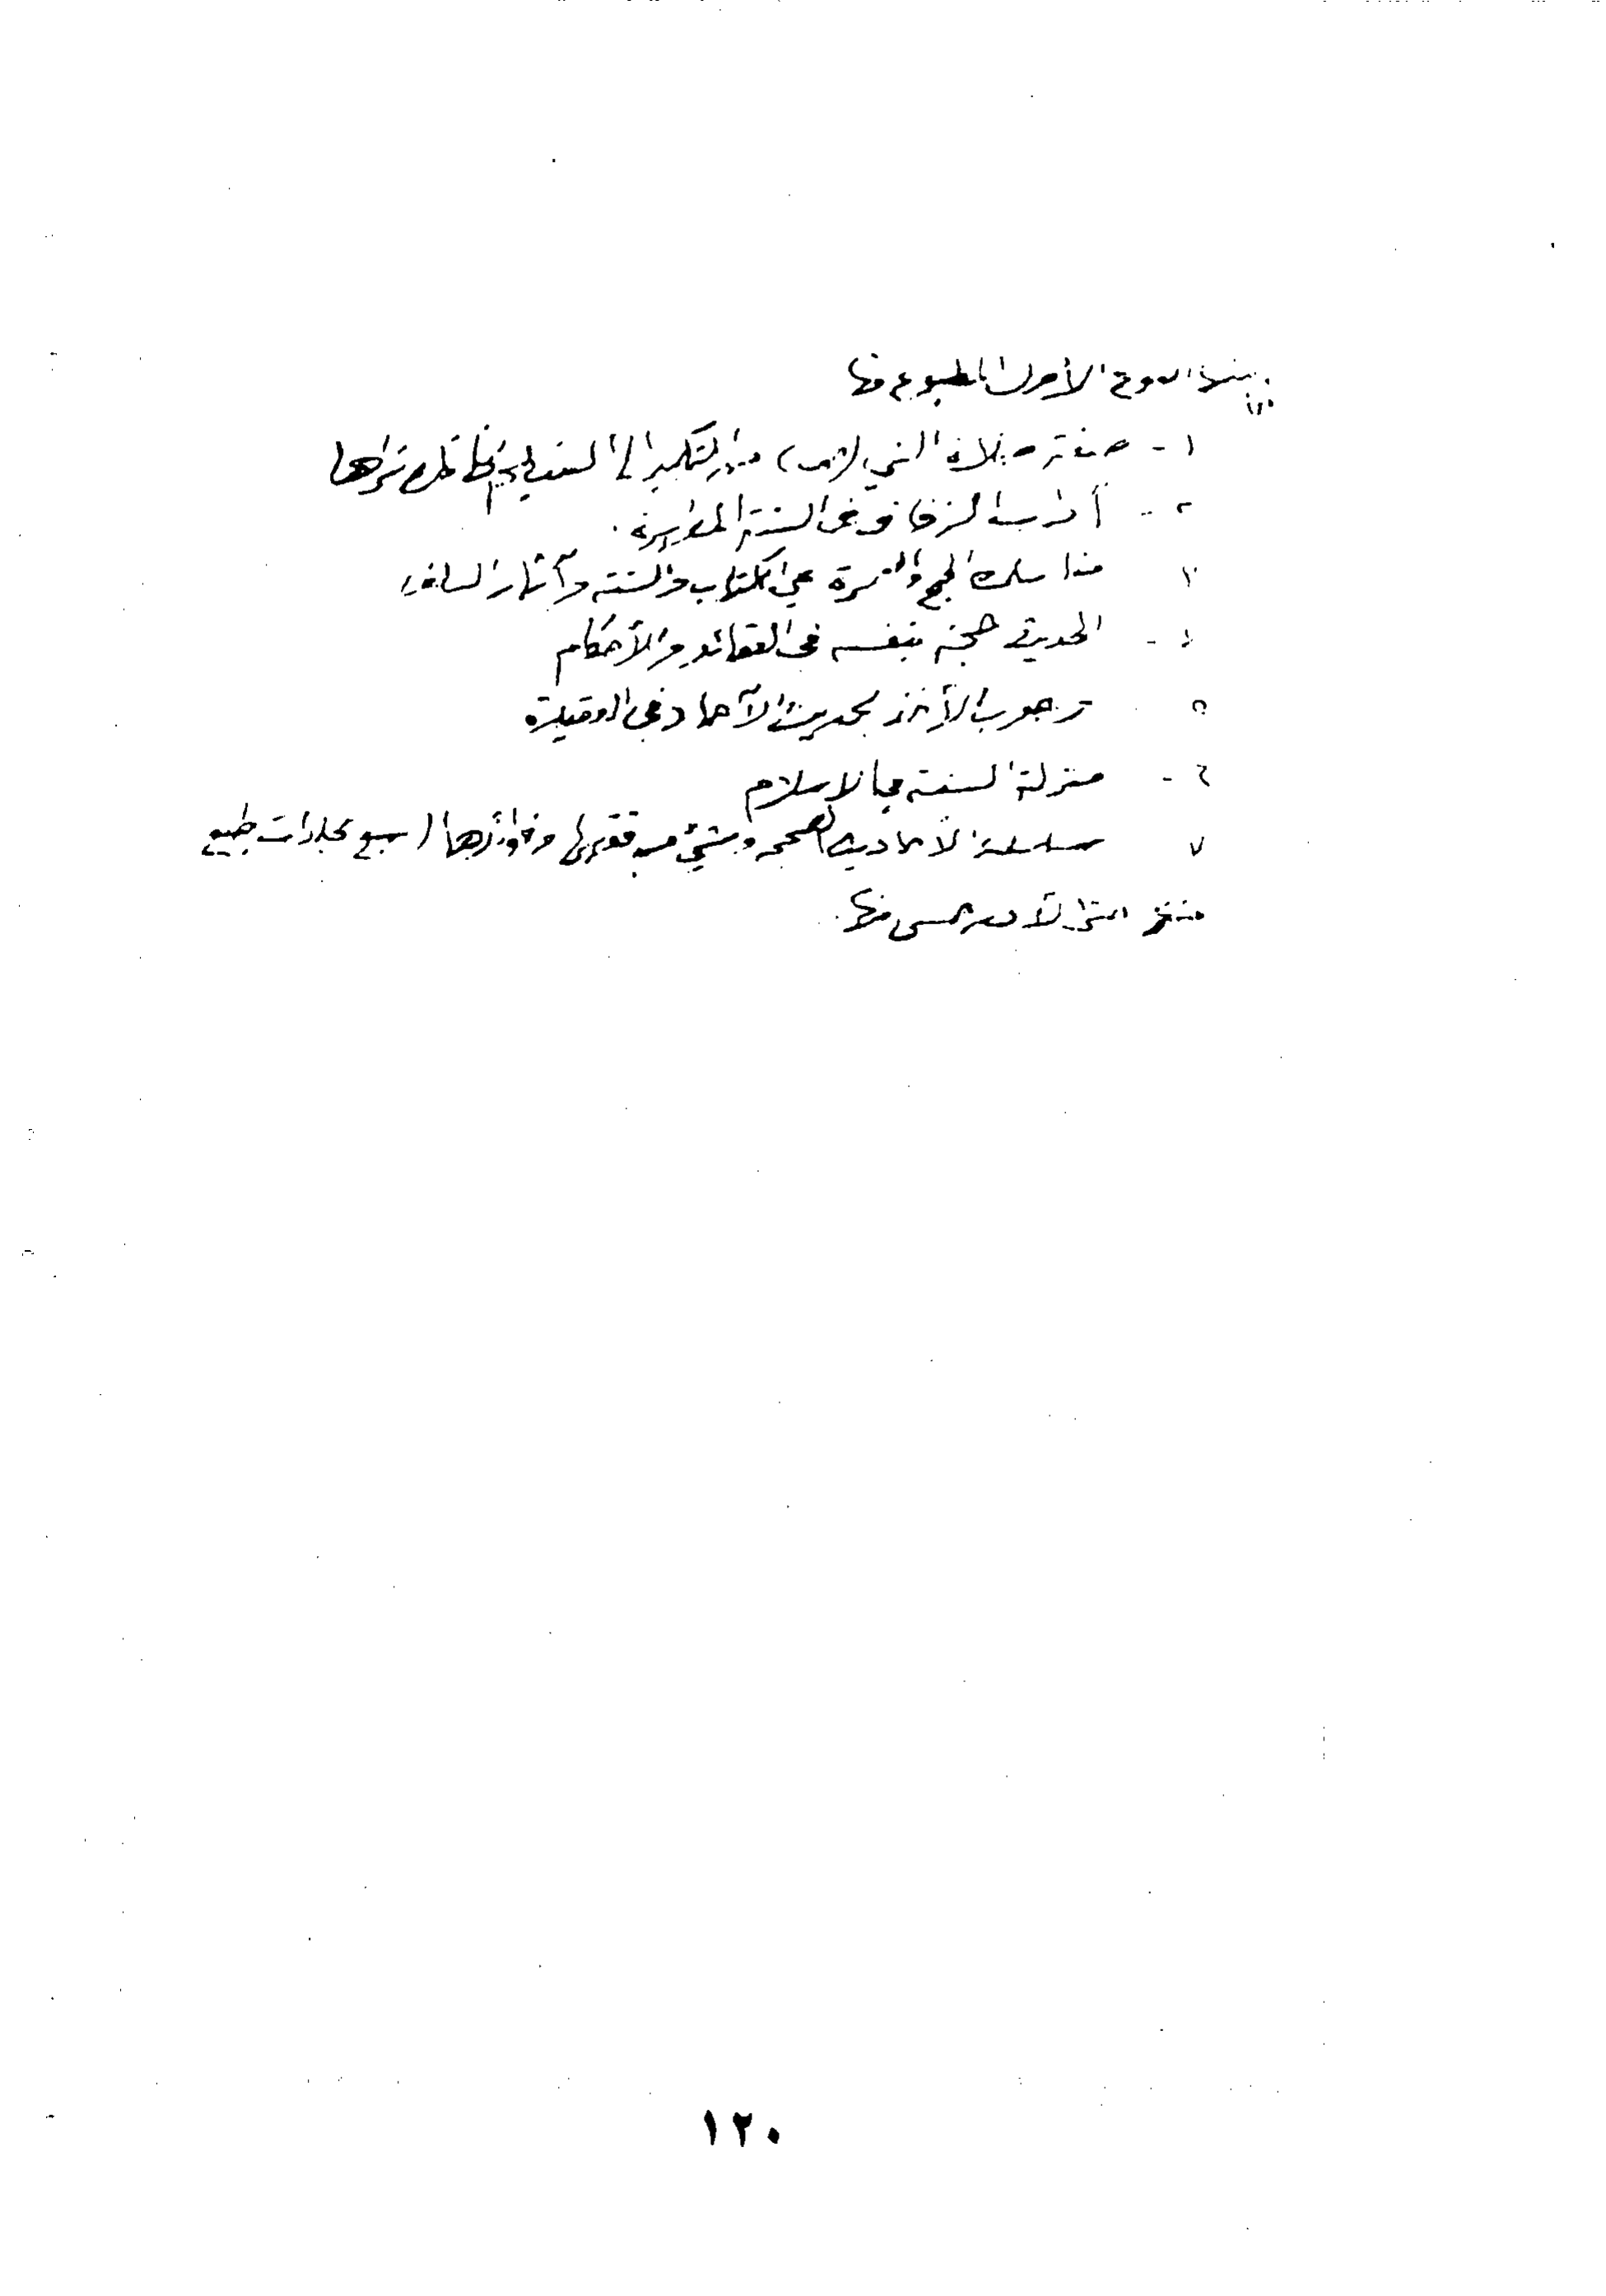 الأول المطبوع منها
١ - صفة صلاة النبي (ص) من التكبير إلى التسليم كأنك تراها
٢ - آداب الزفاف في السنة المطهرة.
٣ مناسك الحج والعمرة في الكتاب والسنة وآثار السلف
٤ - الحديث حجة بنفسه في العقائد والأحكام
٥ وجوب الأخذ بحديث الآحاد في العقيدة
٦ - منزلة السنة في الاسلام
٧ سلسلة الأحاديث الصحيحة وشيء من فقهها وفوائدها (سبع مجلدات طبع
منها
١٢٠